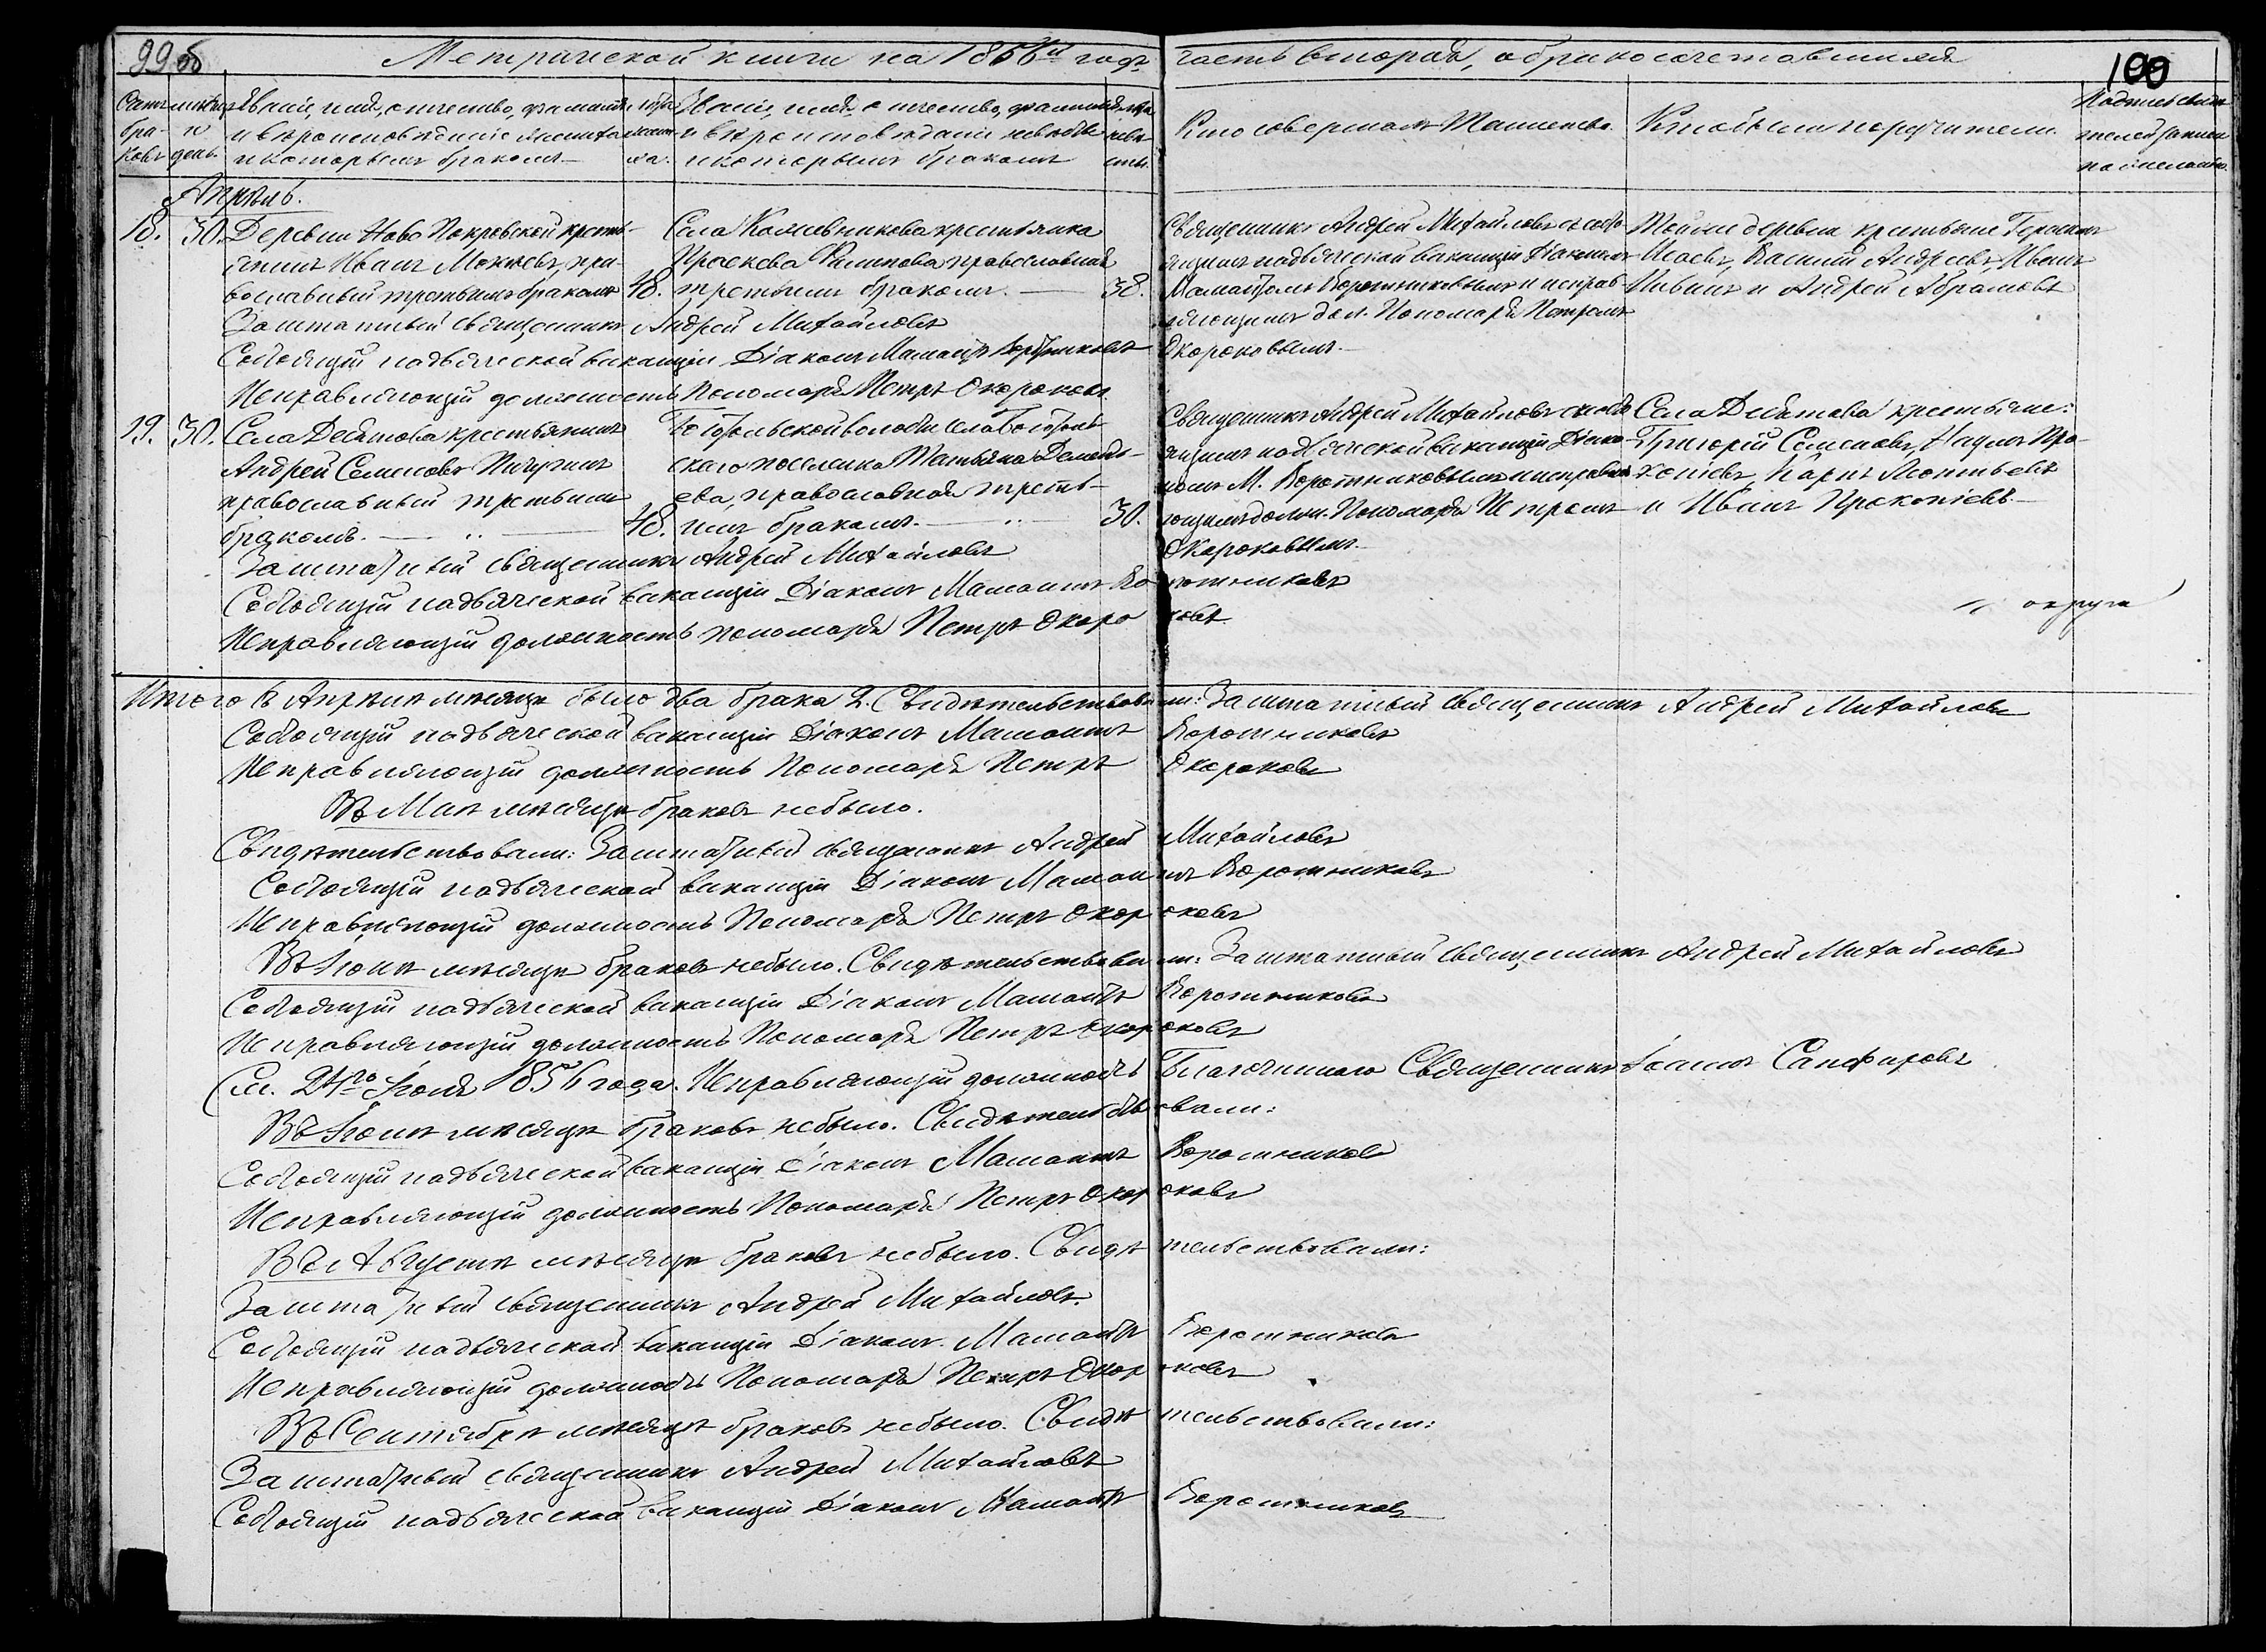 99 об
Метрической книги на 1856й годъ часть вторая, о бракосочетавшихся
100
Счетъ браковъ
мѣсяцъ и день
Званіе, имя, отчество, фамилія и вѣроисповѣданіе жениха и которымъ бракомъ
лѣта жениха.
Званіе, имя, отчество, фамилія и вѣроисповѣданіе невѣсты и которымъ бракомъ
лѣта невѣсты.
Кто совершалъ Таинство.
Кто были поручители
Апрѣль.
18. 30.
Деревни Ново Покровской кресть-
янинъ Иванъ пра-
вославный третьимъ бракомъ 48.
Села крестьянка
Праскева Филипова православная
третьимъ бракомъ. 38.
Священникъ Андрей Михайловъ съ состо-
ящимъ на дьяческой вакансіи Діакономъ
Мамантомъ Воротниковымъ и исправ-
ляющимъ дол. Пономаря Петромъ
Окороковымъ.
Тойже деревни крестьяне Герасимъ
Исаевъ, Василий Андреевъ, Иванъ
и Андрей Абрамовъ
Заштатный священникъ Андрей Михайловъ
Состоящій на дьяческой вакансіи Діаконъ Мамантъ Воротниковъ
Исправляющій должность Пономаря Петръ Окороковъ.
19. 30.
Села Десятова крестьянинъ
Андрей Семеновъ Пичугинъ
православный третьимъ
бракомъ. 48.
Боготольской волости села Боготоль-
скаго поселенка Татьяна Дементь-
ева, православная треть-
имъ бракомъ. 30.
Священникъ Андрей Михайловъ съ состо-
ящимъ на дьяческой вакансіи Діако-
номъ М. Воротниковымъ и исправля-
ющимъ должн. Пономаря Петромъ
Окороковымъ.
Села Десятова крестьяне:
Григорій Семеновъ, Наумъ Про-
копіевъ, Карпъ Леонтьевъ
и Иванъ Прокопіевъ.
Заштатный священникъ Андрей Михайловъ
Состоящій на дьяческой вакансіи Діаконъ Мамантъ Воротниковъ
Исправляющій должность пономаря Петръ Окороковъ.
округа
Итого въ Апрѣлѣ мѣсяцѣ было два брака 2. Свидѣтельствовали: Заштатный священникъ Андрей Михайловъ
Состоящій на дьяческой вакансіи Діаконъ Мамонтъ Воротниковъ
Исправляющій должность Пономаря Петръ Окороковъ
Въ Маѣ мѣсяцѣ браковъ небыло.
Свидѣтельствовали: Заштатный священникъ Андрей Михайловъ
Состоящій на дьяческой вакансіи Діаконъ Мамонтъ Воротниковъ
Исправляющій должность Пономаря Петръ Окороковъ
Въ Іюнѣ мѣсяцѣ браковъ небыло. Свидѣтельствовали: Заштатный священникъ Андрей Михайловъ
Состоящій на дьяческой вакансіи Діаконъ Мамонтъ Воротниковъ
Исправляющій должность Пономаря Петръ Окороковъ
24го 1856 года. Исправляющій должность Благочиннаго Священникъ Іоаннъ Сапфировъ
Въ Іюлѣ мѣсяцѣ браковъ небыло. Свидѣтельствовали:
Состоящій на дьяческой вакансіи Діаконъ Мамонтъ Воротниковъ
Исправляющій должность Пономаря Петръ Окороковъ
Въ Августѣ мѣсяцѣ браковъ небыло. Свидѣтельствовали:
Заштатный священникъ Андрей Михайловъ.
Состоящій на дьяческой вакансіи Діаконъ Мамонтъ Воротниковъ
Исправляющій должность Пономаря Петръ Окороковъ
Въ Сентябрѣ мѣсяцѣ браковъ небыло. Свидѣтельствовали:
Заштатный священникъ Андрей Михайловъ
Состоящій на дьяческой вакансіи Діаконъ Мамонтъ Воротниковъ